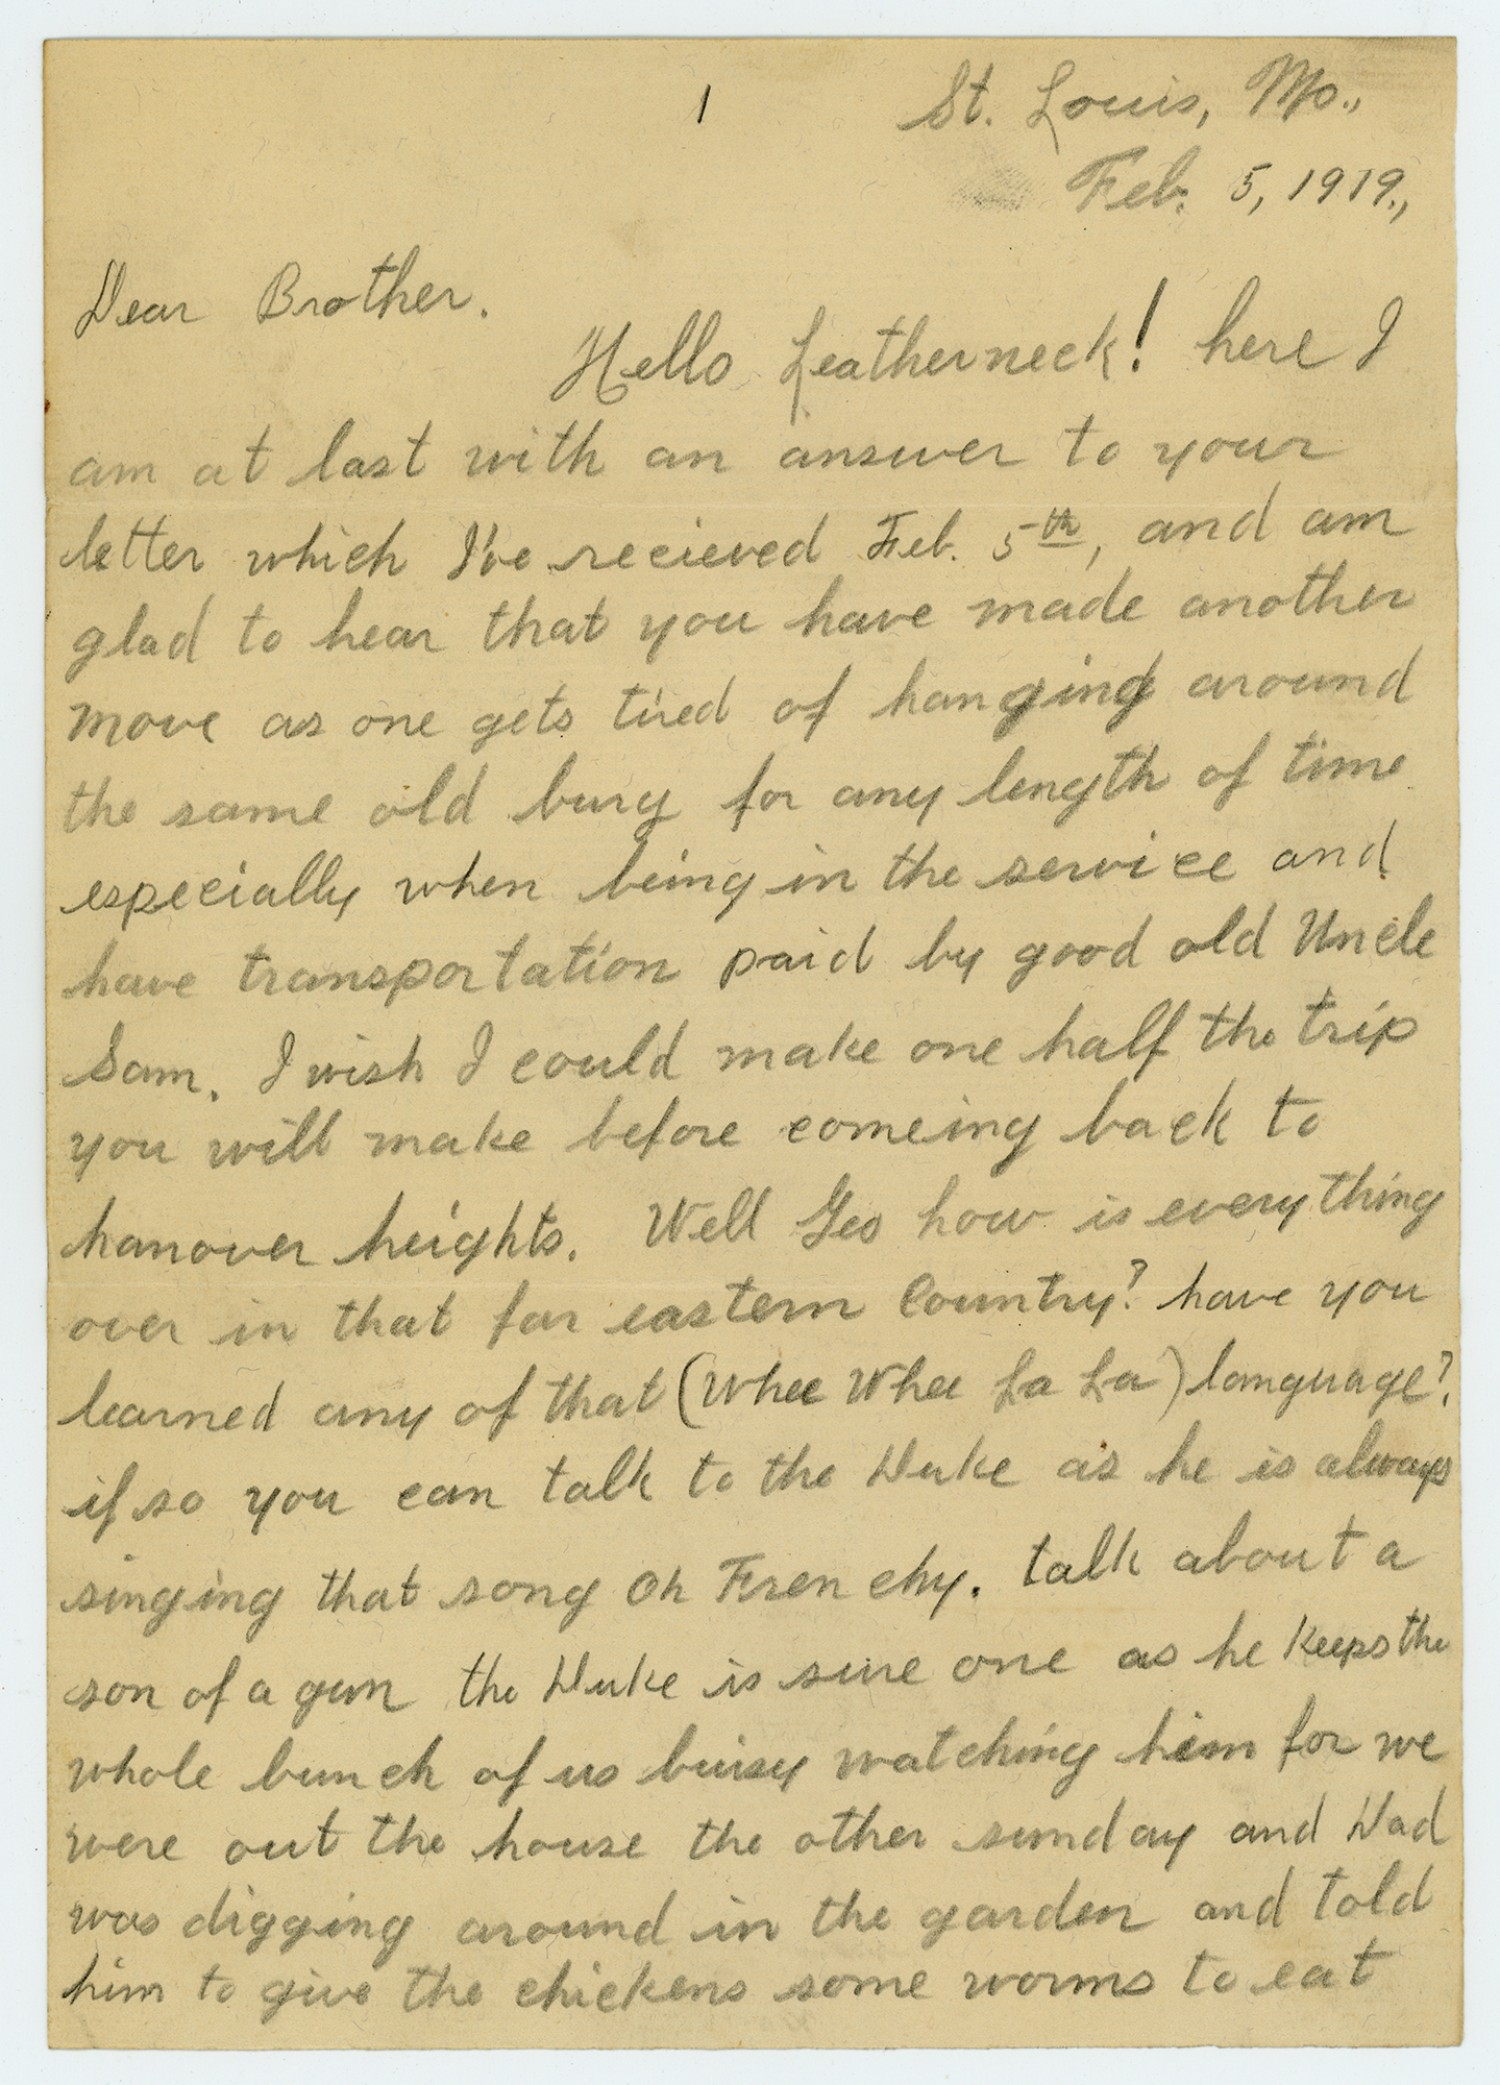 1
St. Louis, Mo.,
Feb. 5, 1919.,
Dear Brother.
Hello Leatherneck! here I
am at last with an answer to your
letter which I've recieved Feb. 5th, and am
glad to hear that you have made another
move as one gets tired of hanging around
the same old burg for any length of time
especially when being in the service and
have transportation paid by good old Uncle
Sam. I wish I could make one half the trip
you will make before comeing back to
hanover heights. Well Geo how is everything
over in that far eastern Country? have you
learned any of that (Whee Whee La La) language?
if so you can talk to the Duke as he is always
singing that song Oh Frenchy. talk about a
son of a gun the Duke is sure one as he keeps the
whole bunch of us buisy watching him for we
were out the house the other sunday and Dad
was digging around in the garden and told
him to give the chickens some worms to eat